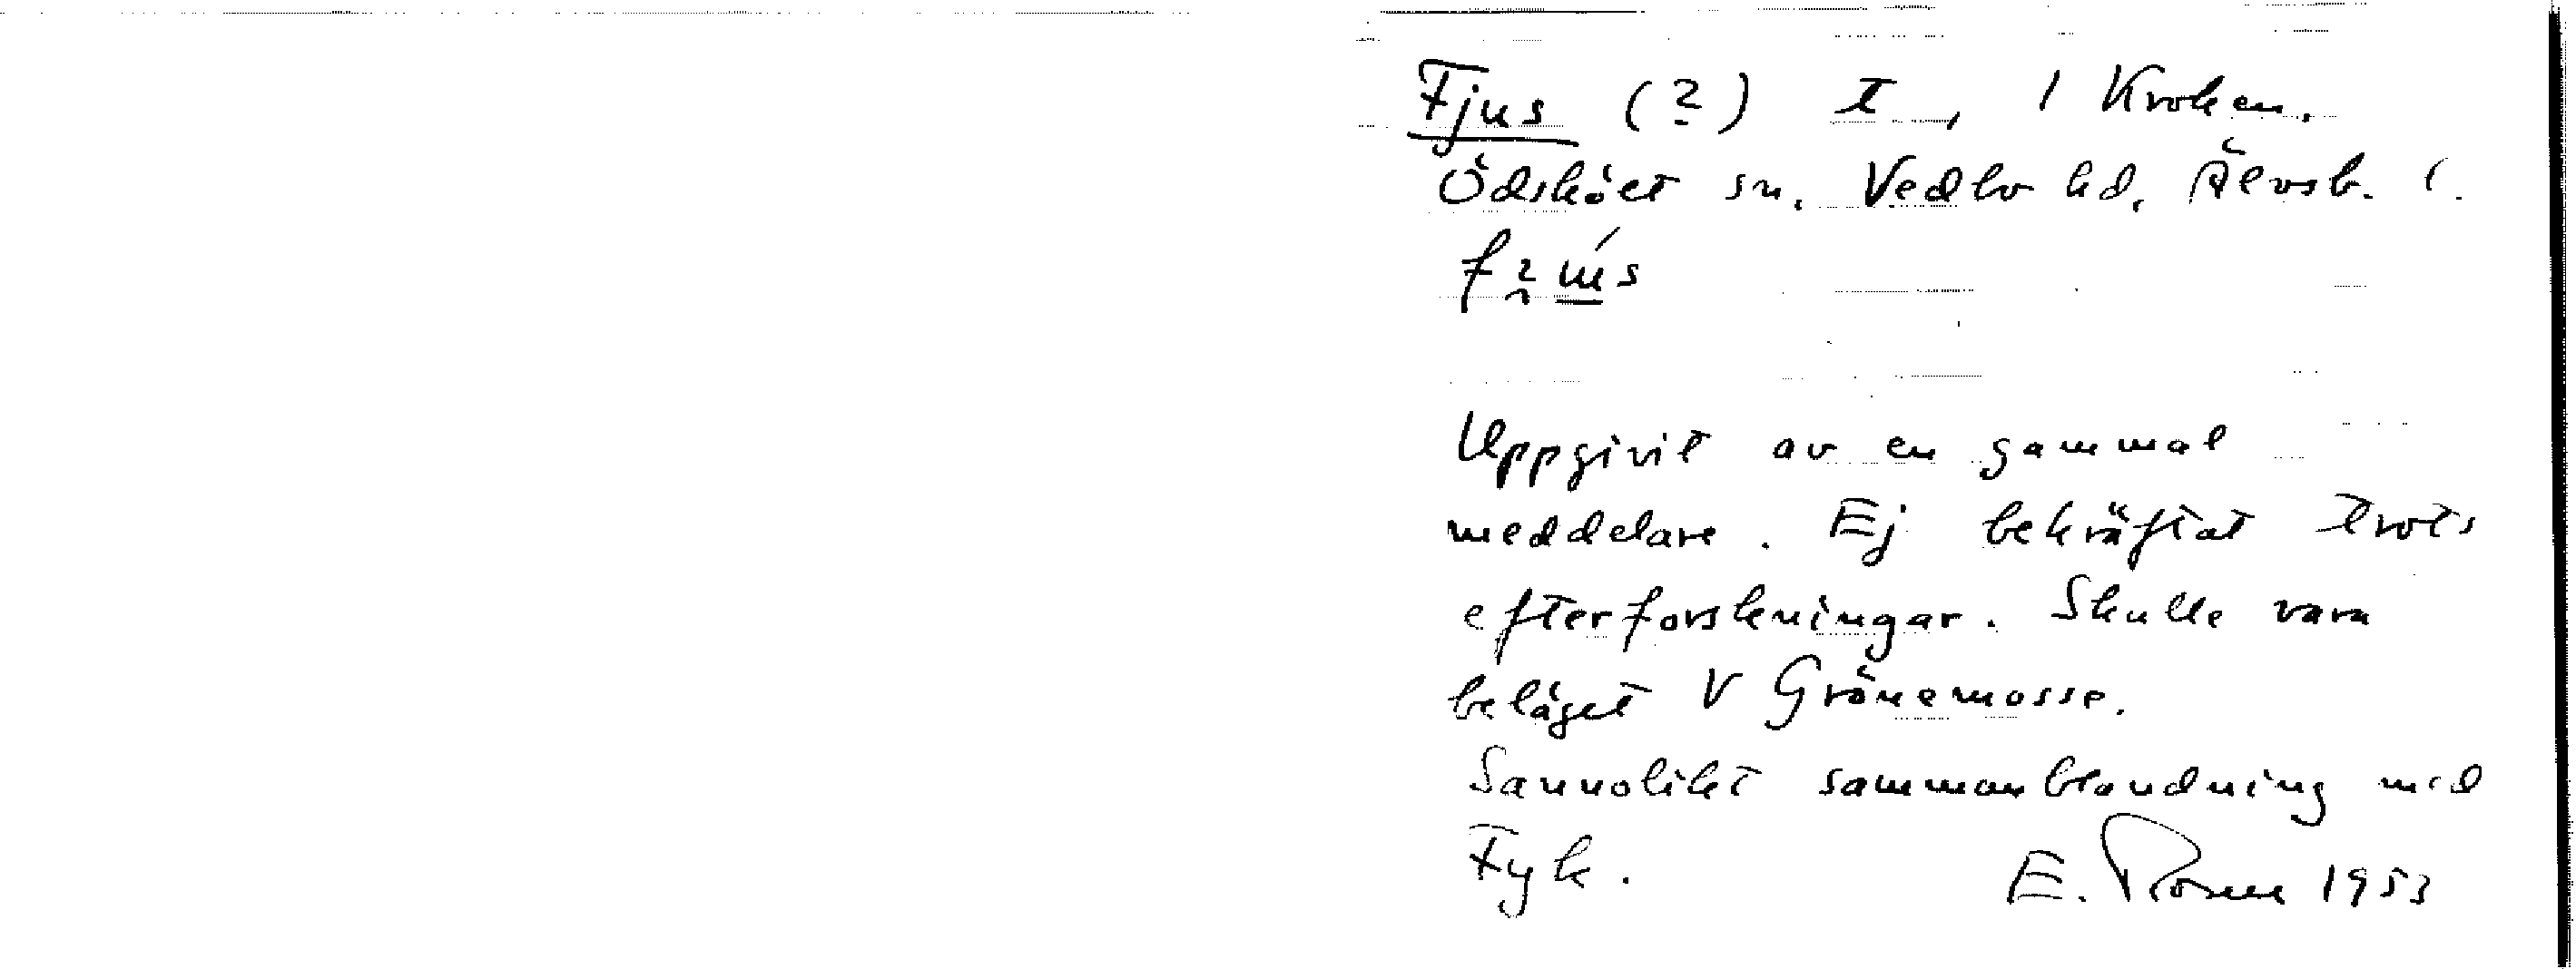 Fjus (?) t, 1 Kroken.
Ödskölt sn. Vedbo hd, Älvsb. l.
Uppgivit av en gammal
meddelare. Ej bekräftat trots
efterforskningar. Skulle vara
beläget V Grönemosse.
Sannolikt sammanblandning med
Fyk. E. 1953